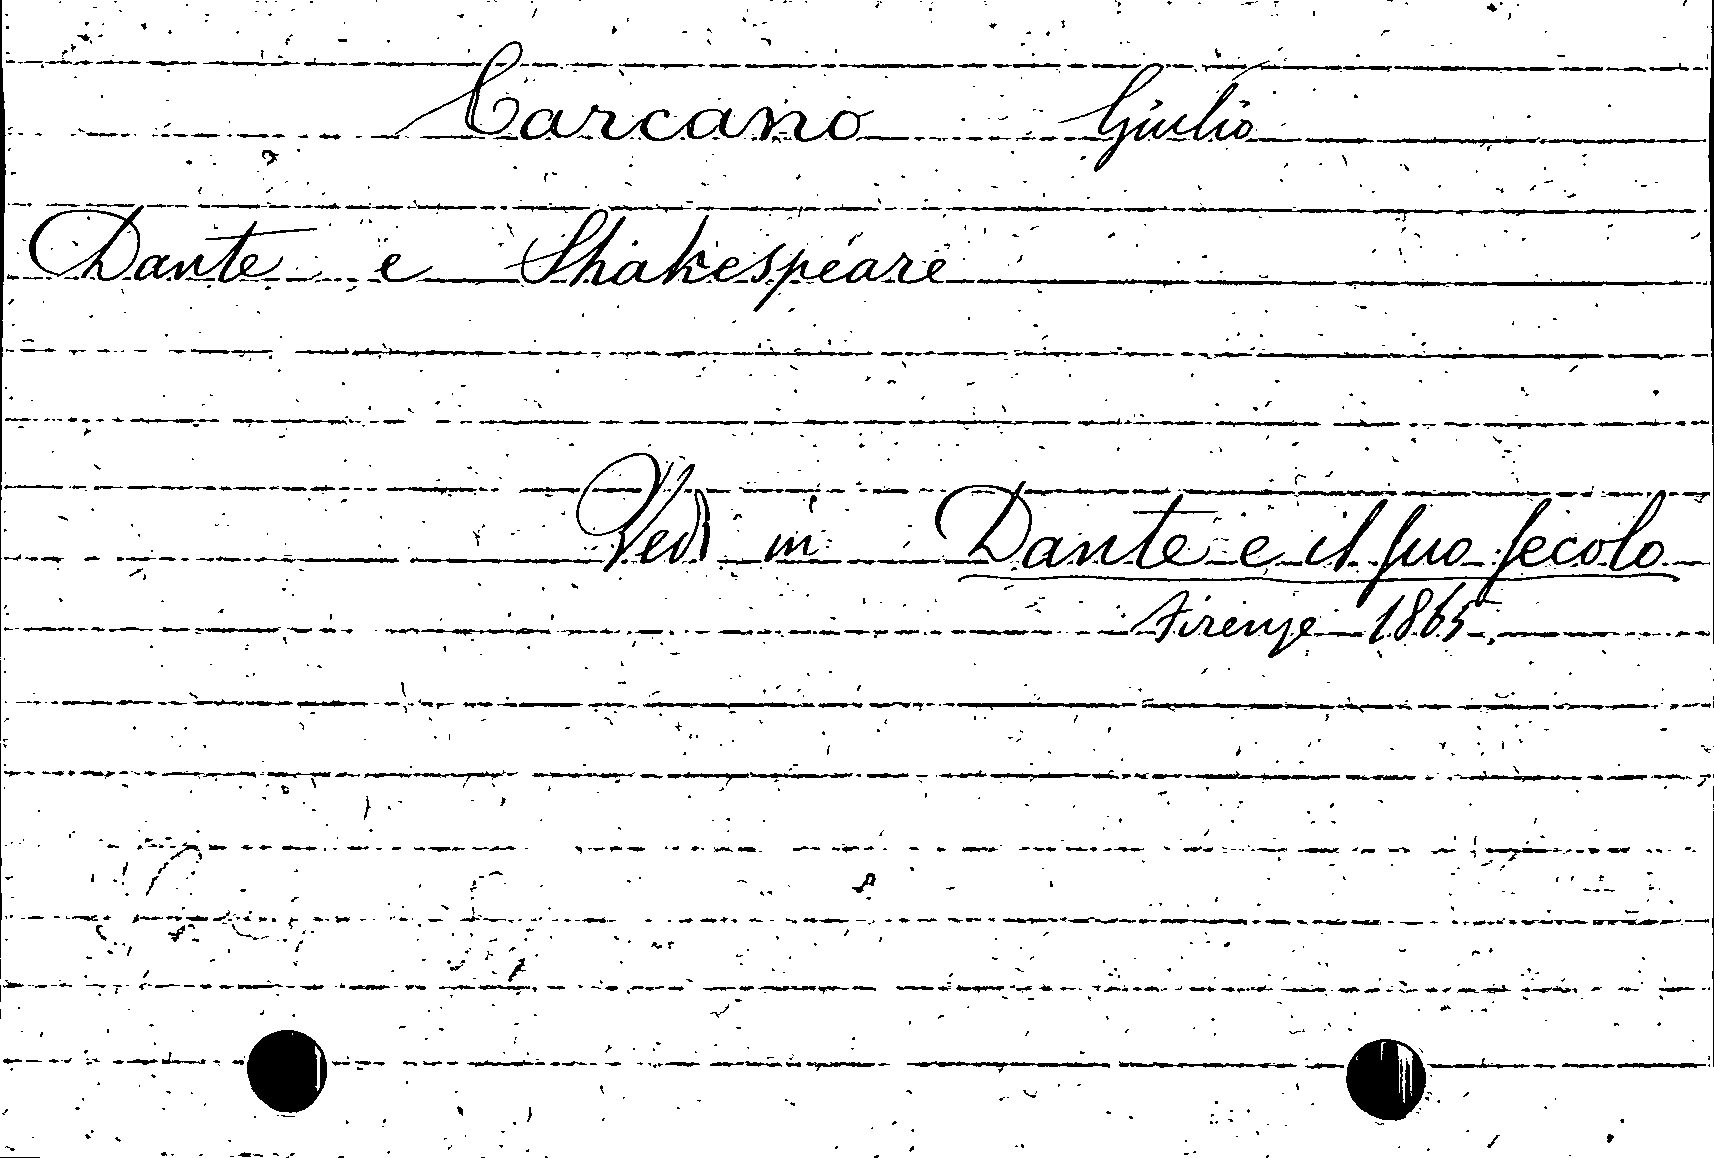 Carcano Giulio
Dante e Shakespeare
Vedi in Dante e il suo secolo
Firenze 1865.